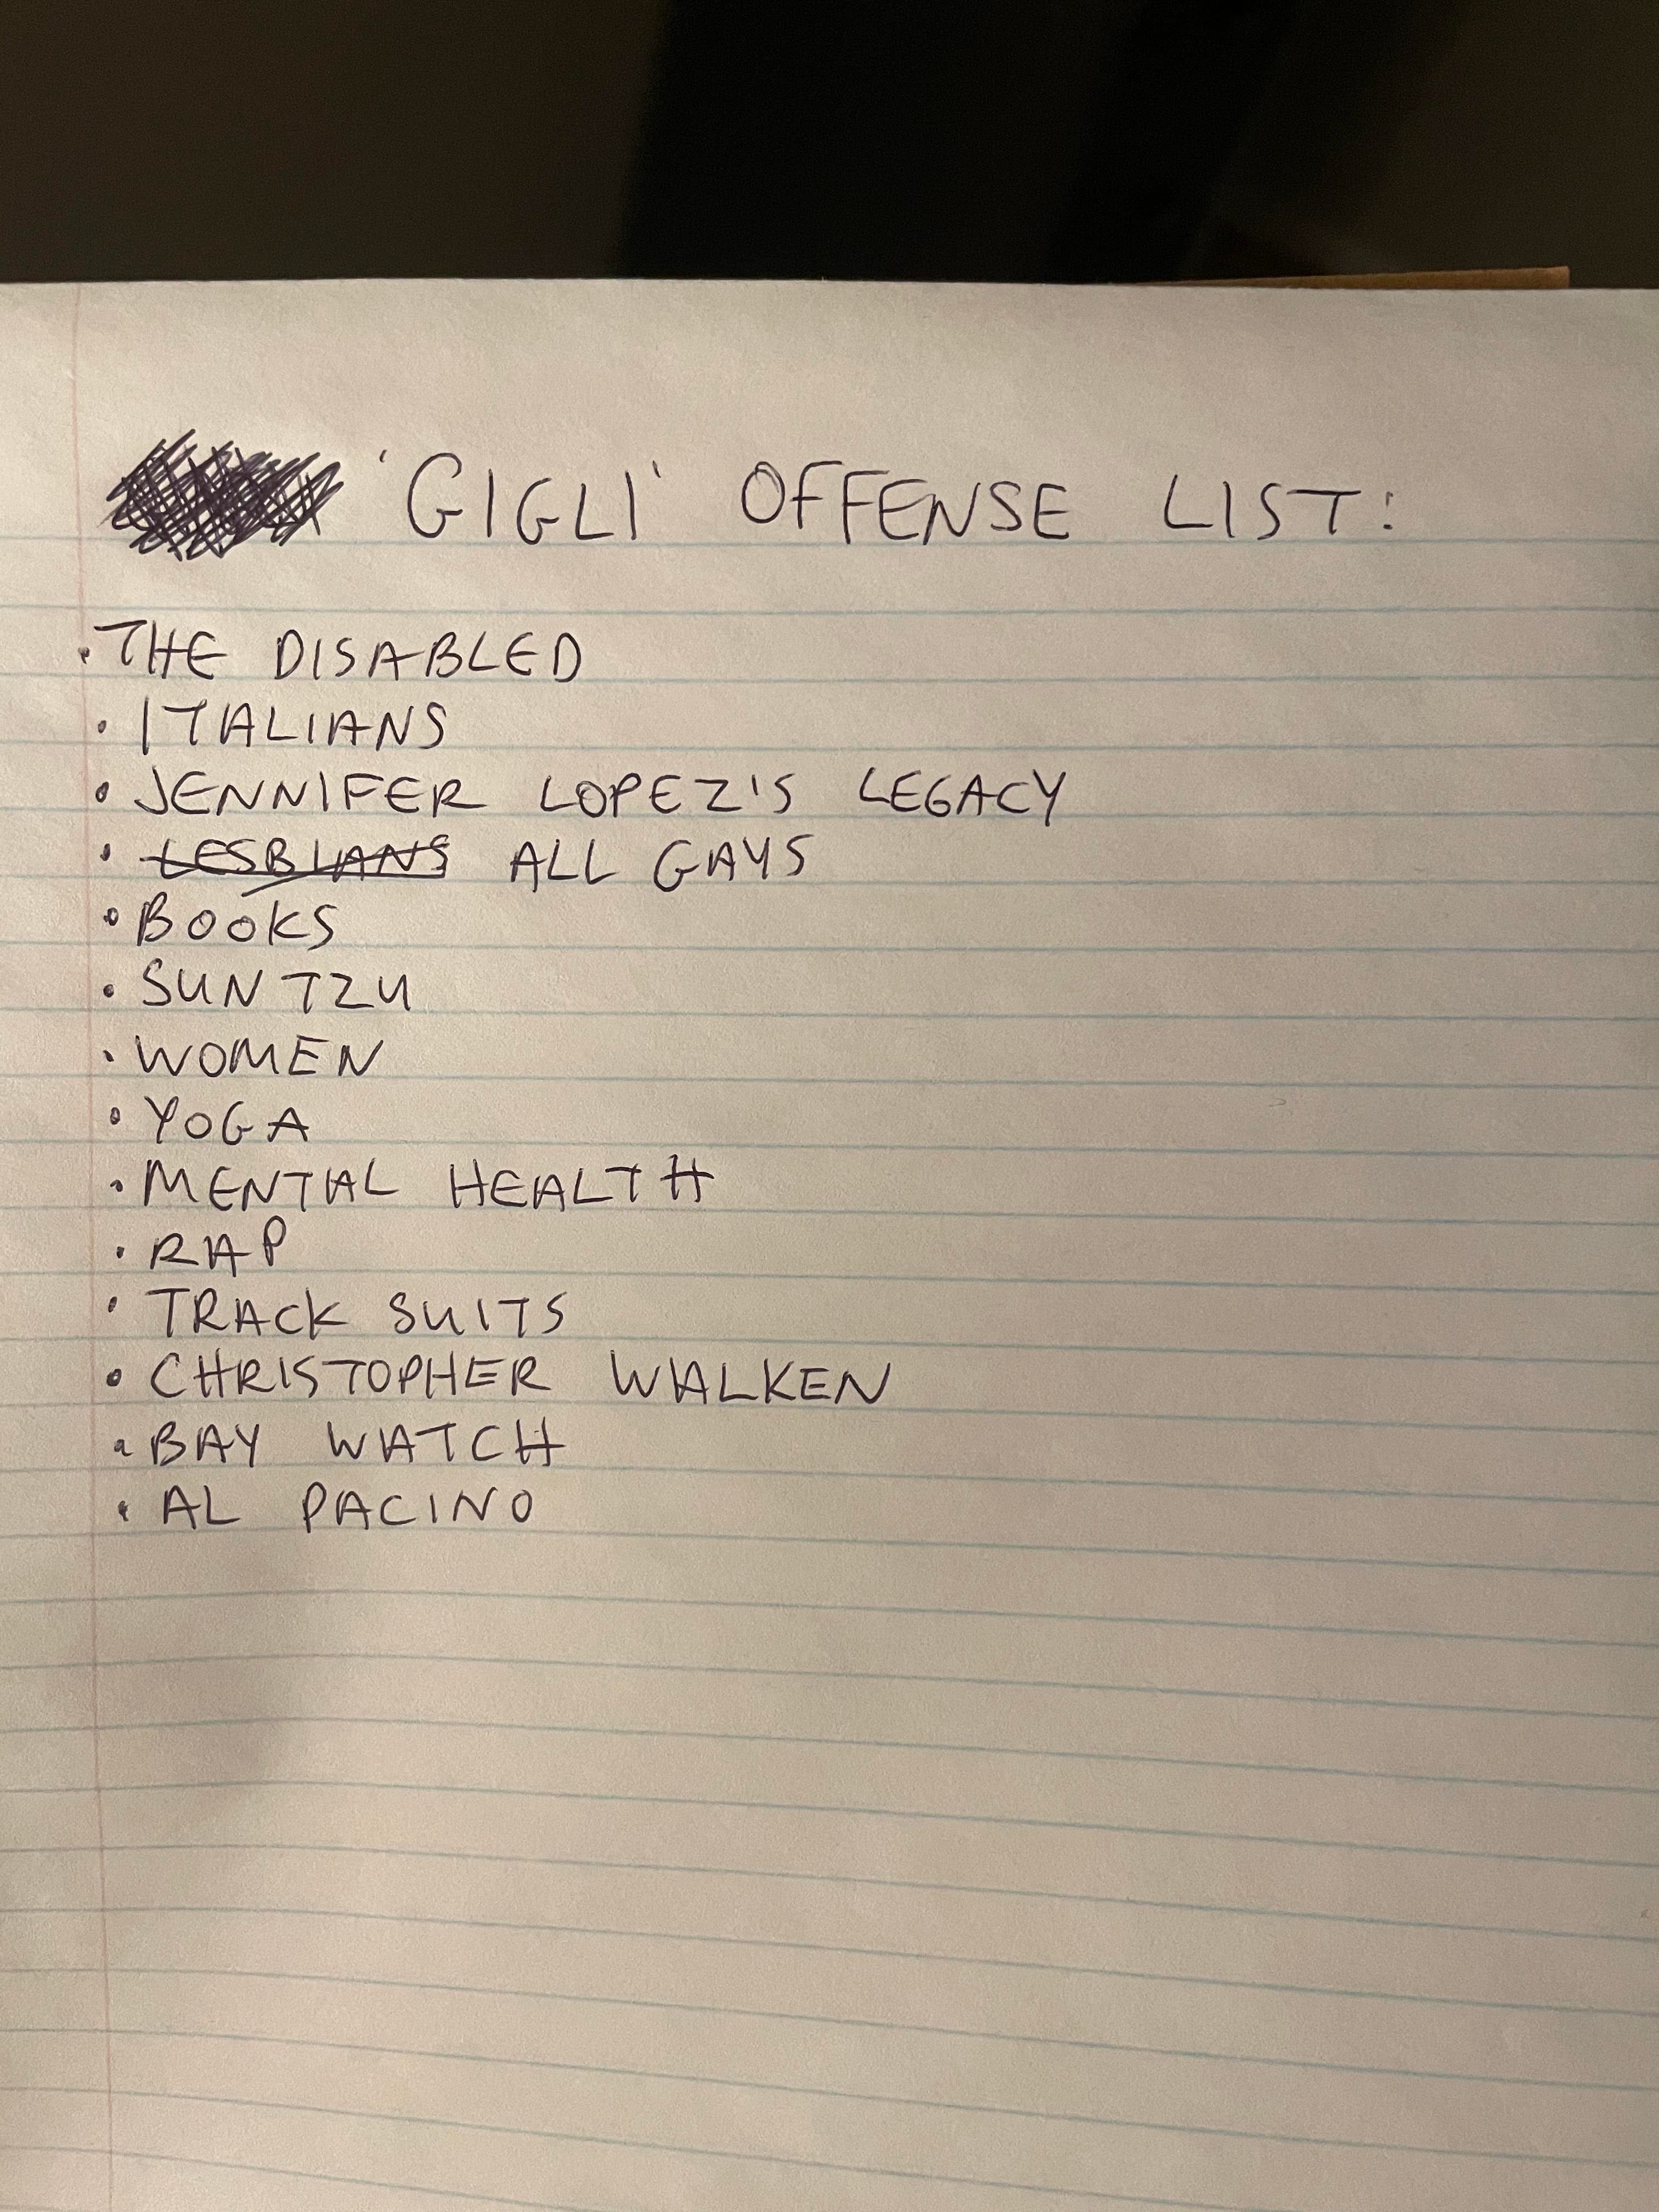 'GIGLI' OFFENSE LIST:
· THE DISABLED
· ITALIANS
· JENNIFER LOPEZ'S LEGACY
· LESBIANS ALL GAYS
· BOOKS
· SUN TZU
· WOMEN
· YOGA
· MENTAL HEALTH
· RAP
· TRACK SUITS
· CHRISTOPHER WALKEN
· BAY WATCH
· AL PACINO